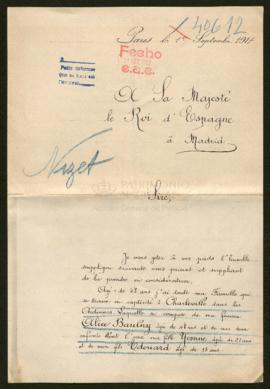 40612
Paris le 1er Septembre 1917
Fecho
e.a.c.
A Sa Majesté
le Roi d'Espagne
à Madrid
Nizet
Sire,
Je viens jeter à vos pieds l'humble
supplique suivante vous priant et suppliant
de la prendre en considération.
Agé de 42 ans j'ai toute ma Famille qui
se trouve en captivité à Charleville dans les
Ardennes. Laquelle se compose de ma femme
Alice Baudhy âgée de et de mes deux
enfants dont l'une ma fille Yvonne âgée de 21 ans
et de mon fils Edouard âgé de 13 ans